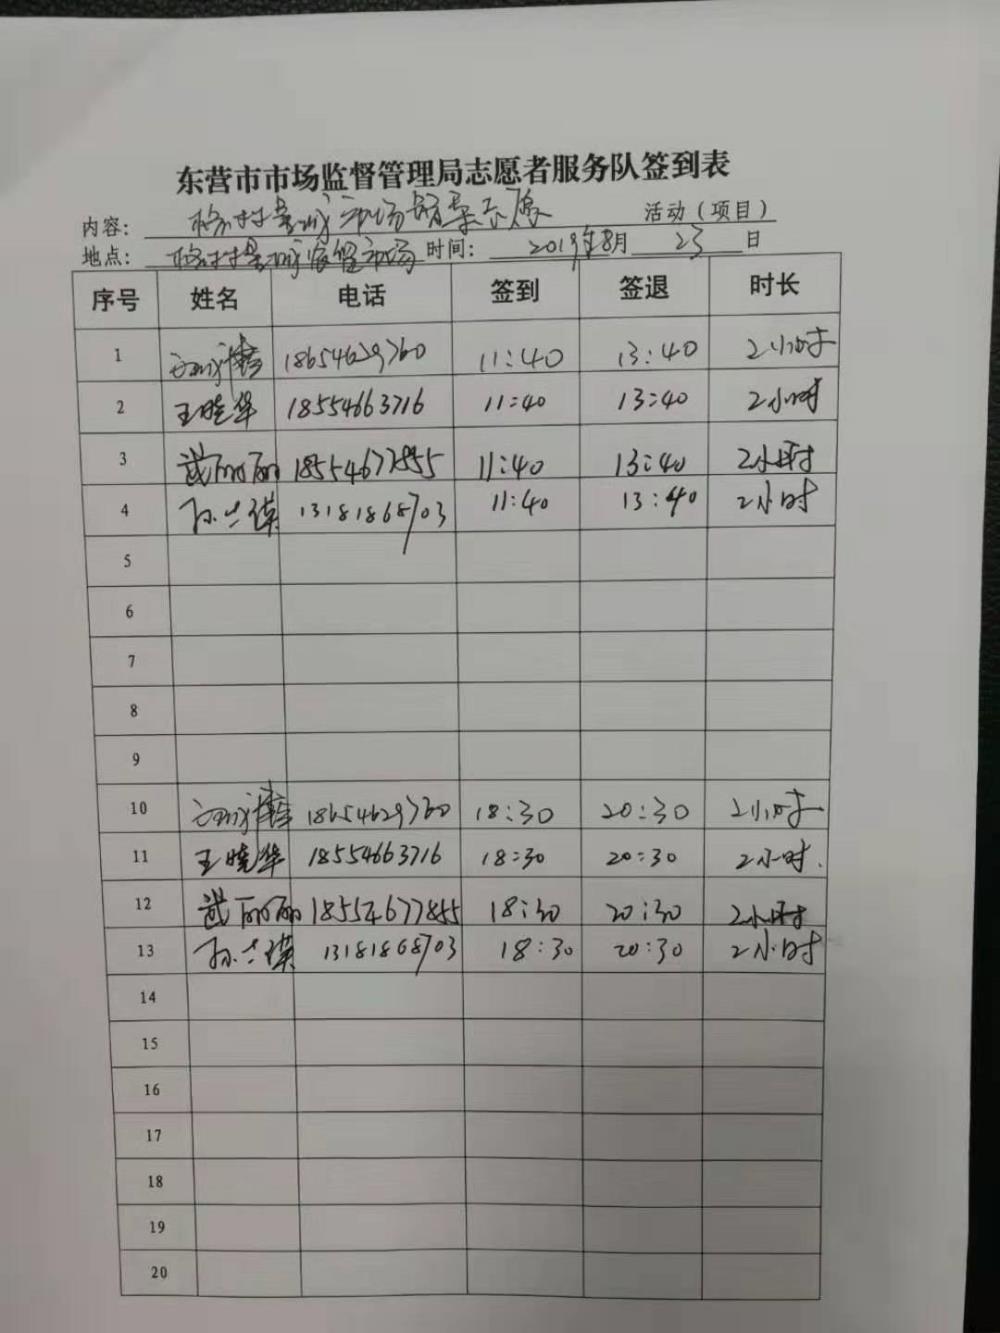 东营市市场监督管理局志愿者服务队签到表
内容: 市场 活动(项目)
地点: 市场 时间: 2019年8月 23 日
序号 姓名 电话 签到 签退 时长
1 18654629760 11:40 13:40 2小时
2 王晓华 18554663716 11:40 13:40 2小时
3 武丽丽 18554677855 11:40 13:40 2小时
4 孙兰瑛 13181868703 11:40 13:40 2小时
5
6
7
8
9
10 18654629760 18:30 20:30 2小时
11 王晓华 18554663716 18:30 20:30 2小时.
12 武丽丽 18554677855 18:30 20:30 2小时
13 孙兰瑛 13181868703 18:30 20:30 2小时
14
15
16
17
18
19
20